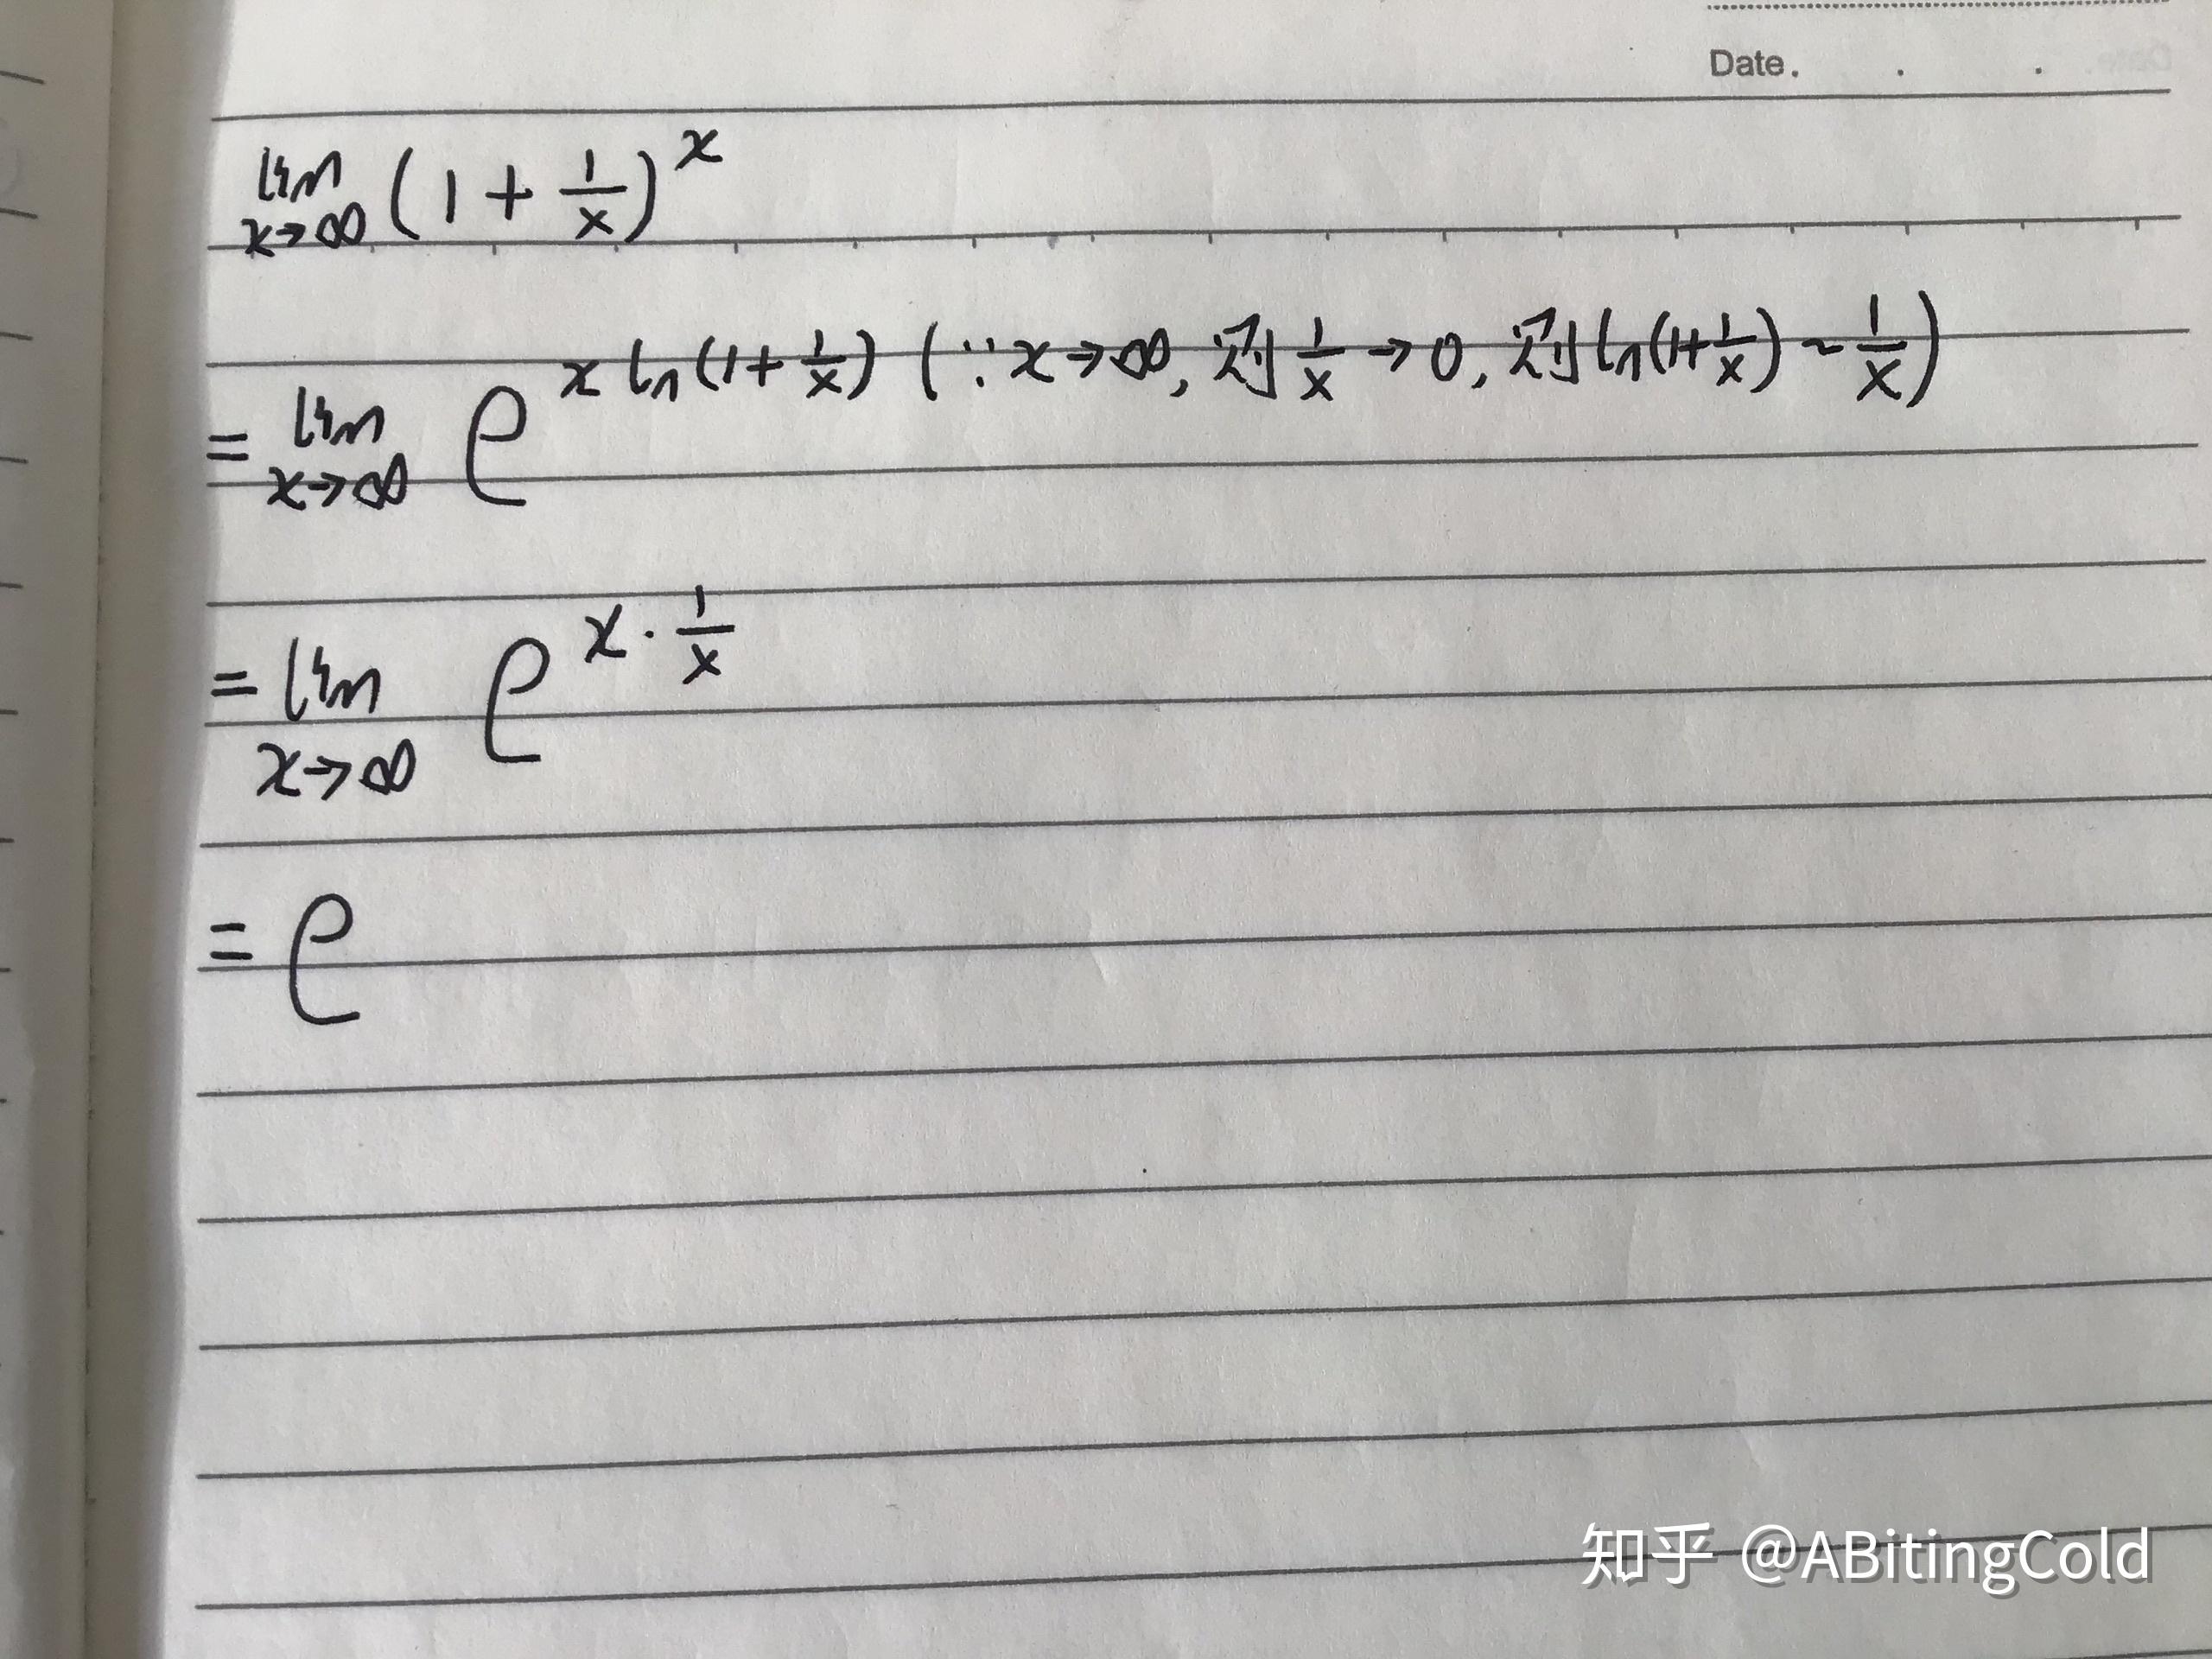 Date.
lim x→∞ (1 + 1/x)^x
= lim x→∞ e^(x ln(1+1/x)) (∵ x→∞, 则 1/x → 0, 则 ln(1+1/x) ~ 1/x)
= lim x→∞ e^(x · 1/x)
= e
知乎 @ABitingCold